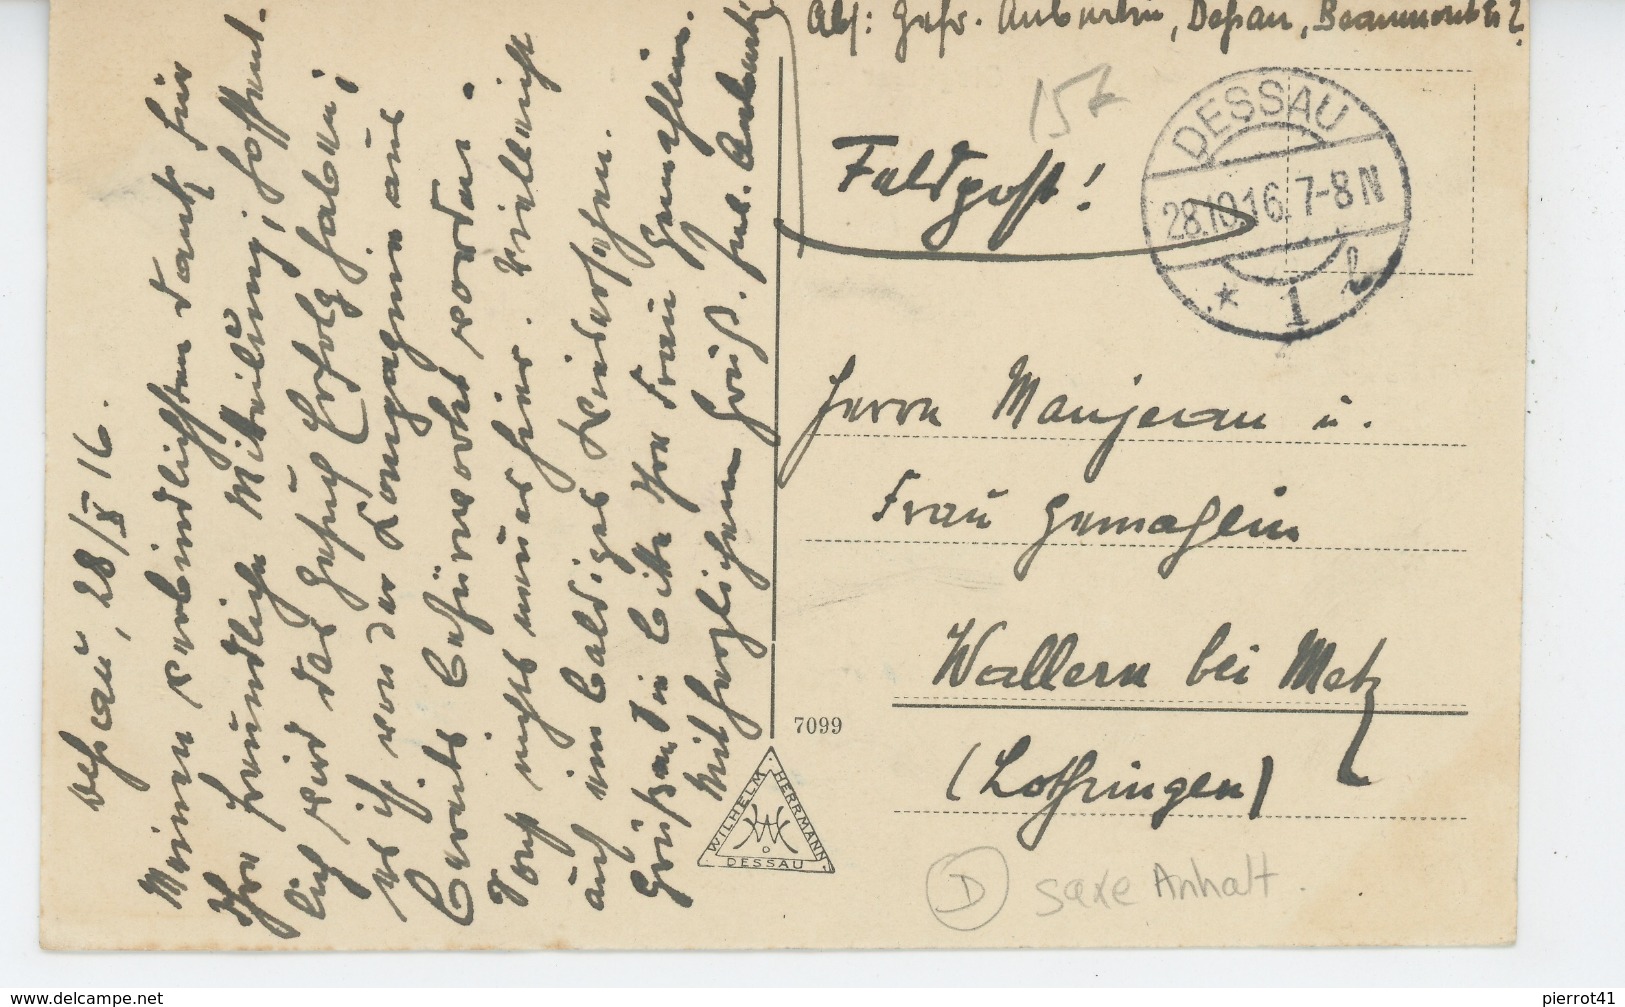 Abs: Gefr. Aubertin, Dessau, Beaumontstr 2.
15k
Feldpost!
DESSAU
28.10.16. 7-8 N
* 1 b
Herrn Manjean u.
Frau Gemahlin
Wallern bei Metz
(Lothringen)
Dessau, 28/X 16.
Meinen verbindlichsten Dank für
Ihre freundliche Mitteilung; hoffent-
lich wird das Gesuch Erfolg haben;
es ist von der Kompagnie aus
bereits befürwortet worden.
Sonst nichts neues hier. Vielleicht
auf ein baldiges Wiedersehen.
Grüßen Sie bitte Ihre Frau Gemahlin.
Mit herzlichem Gruß. Jul. Aubertin
7099
WILHELM HERRMANN
DESSAU
D saxe Anhalt.
https://www.delcampe.net
pierrot41